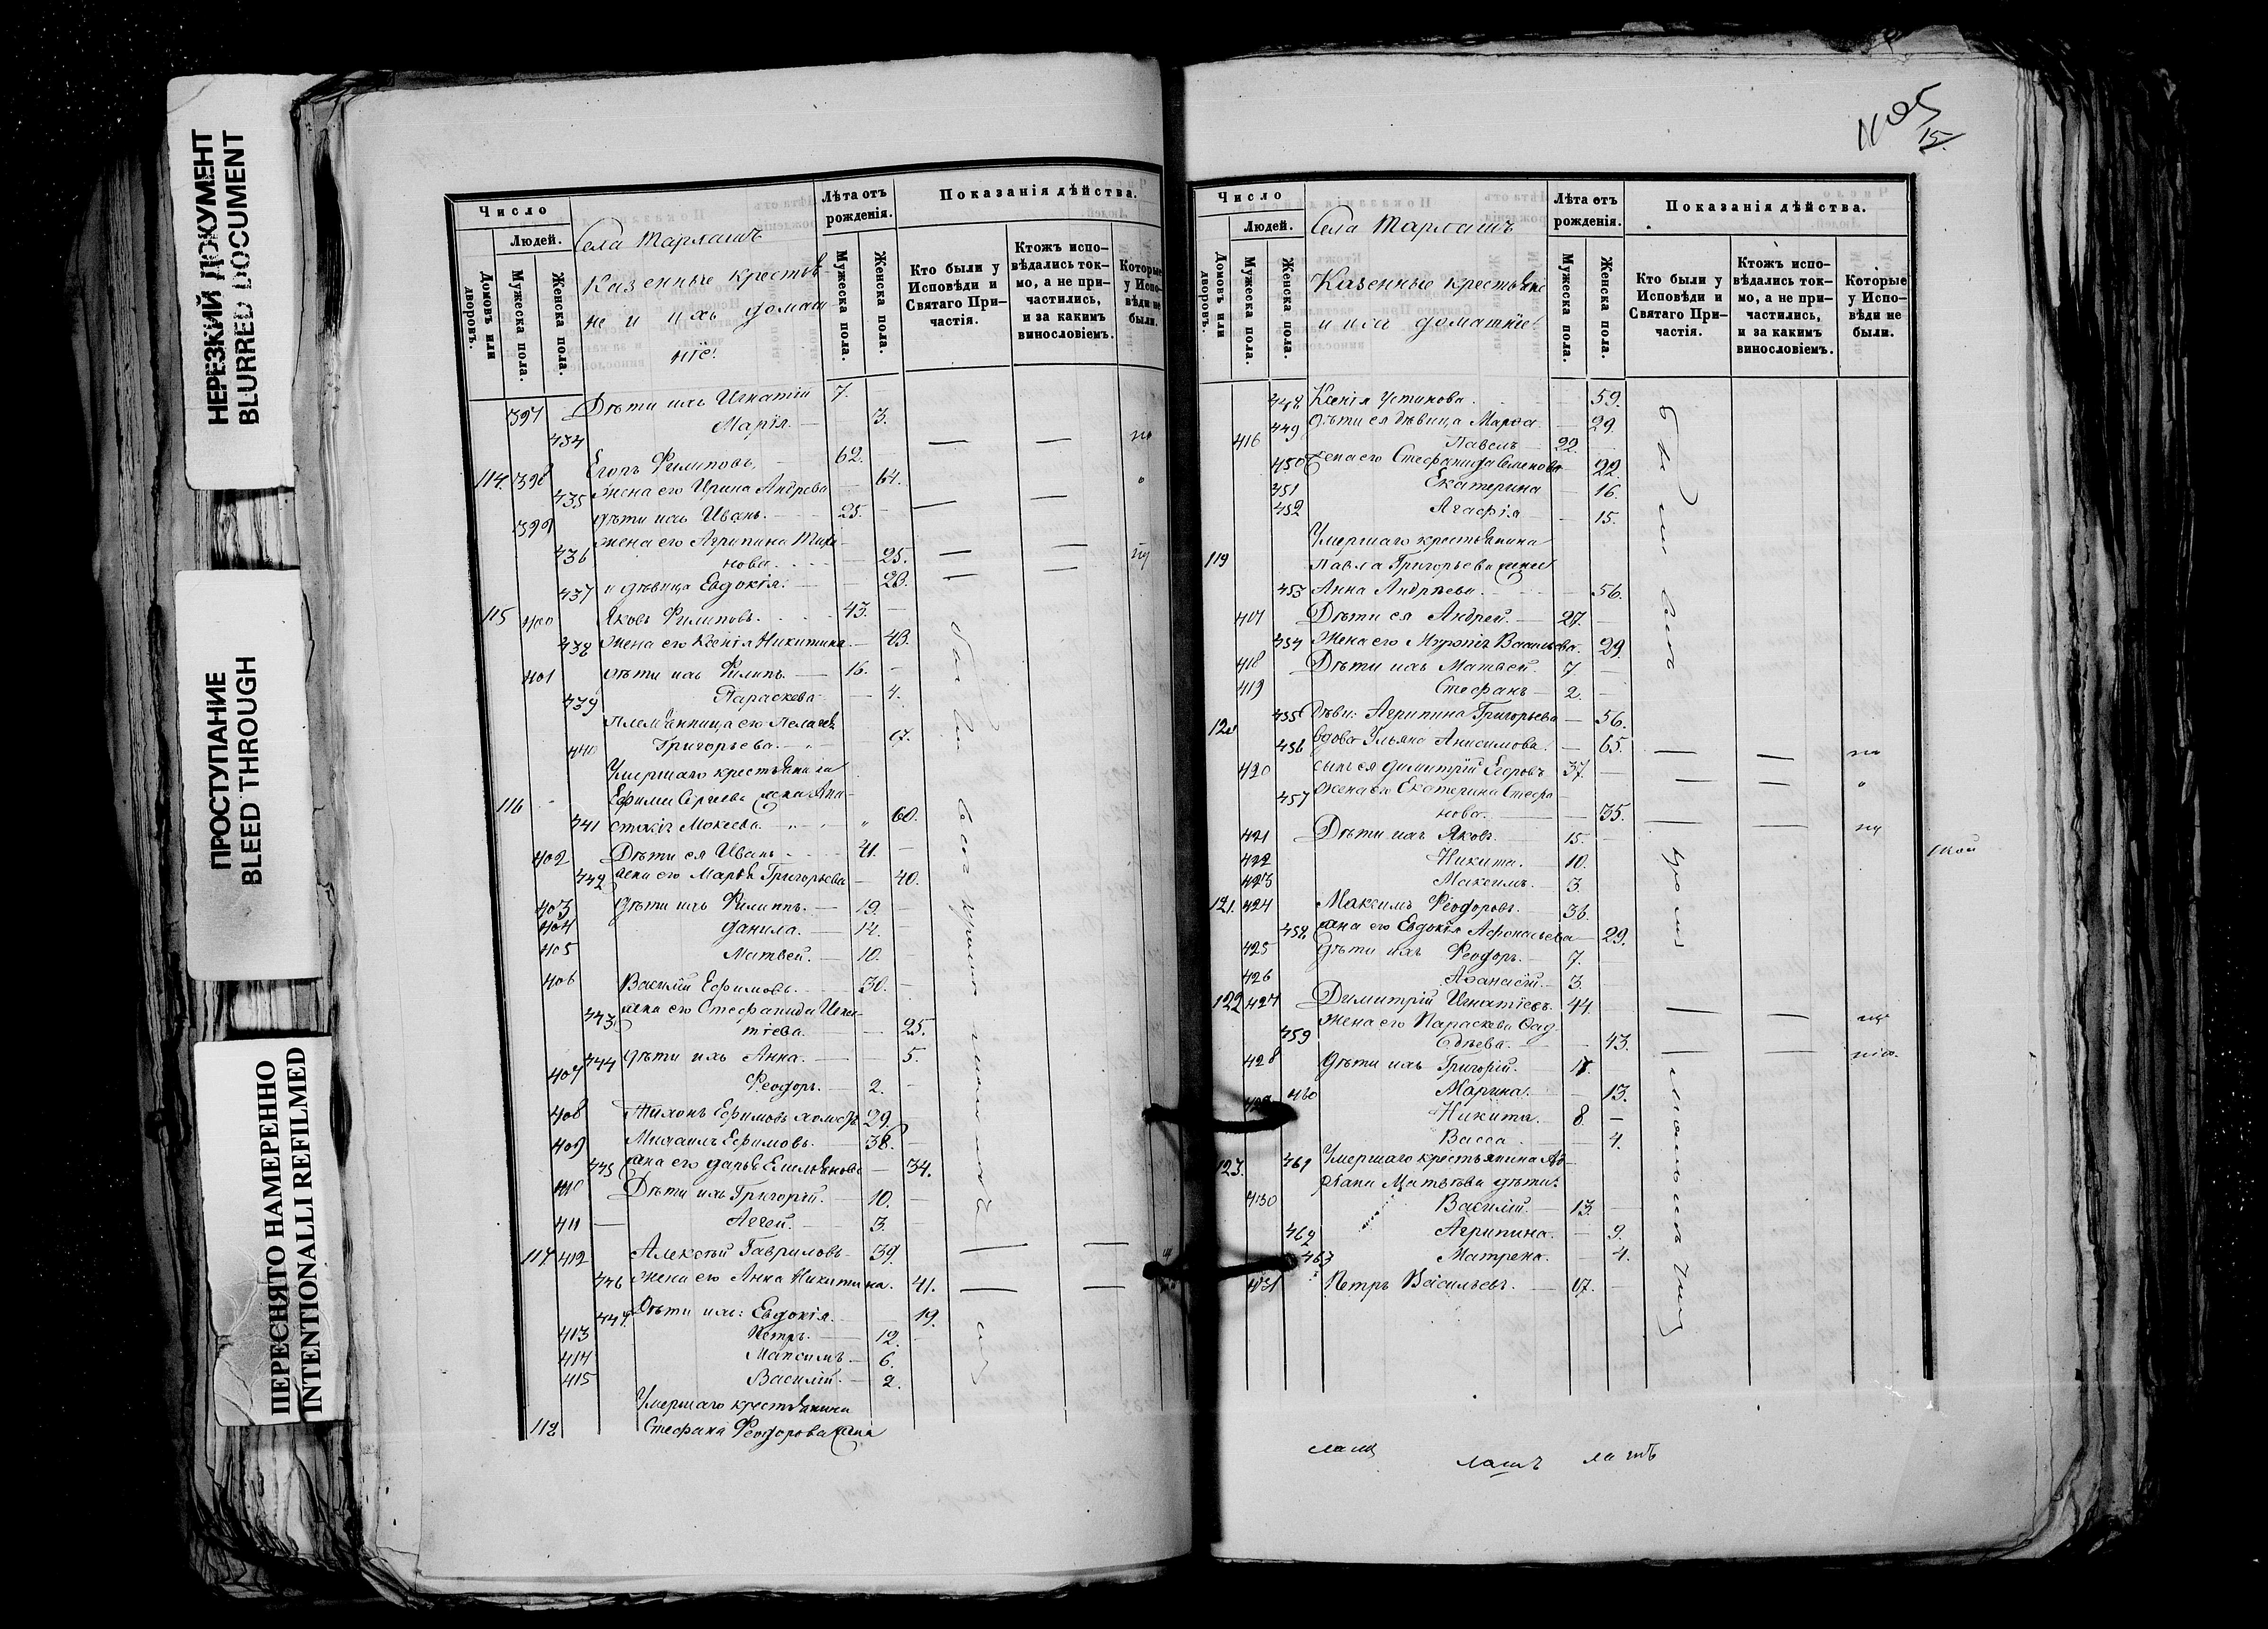 НЕРЕЗКИЙ ДОКУМЕНТ
BLURRED DOCUMENT
ПРОСТУПАНИЕ
BLEED THROUGH
ПЕРЕСНЯТО НАМЕРЕННО
INTENTIONALLI REFILMED
Число
Людей.
Домовъ или дворовъ.
Мужеска пола.
Женска пола.
Села Тарлашъ
казенные крестья-
не и ихъ домаш-
ніе:
Лѣта отъ рожденія.
Мужеска пола.
Женска пола.
Показанія дѣйства.
Кто были у Исповѣди и Святаго Причастія.
Ктожъ исповѣдались токмо, а не причастились, и за какимъ винословіемъ.
Которые у Исповѣди не были.
397 Дѣти ихъ Игнатій 7.
434 Марія. 3.
114. 398 Егоръ Филиповъ. 62.
435 Жена его Ирина Андреева 64.
399 Дѣти ихъ Иванъ. 25.
436 Жена его Агрипина
нова. 25.
437 и дѣвица Евдокія. 20.
115 400 Яковъ Филиповъ. 43.
438 Жена его Ксенія Никитина 43.
401 Дѣти ихъ Филипъ. 16.
439 Параскева 4.
Племянница его Пелагея
440 Григорьева. 17.
Умершаго крестьянина
116 Ефима Сергѣева жена Ана-
441 стасія Мокеева. 60.
402 Дѣти ея Иванъ 41.
442 жена его Марья Григорьева 40.
403 Дѣти ихъ Филиппъ. 19.
404 Данила. 14.
405 Матвей. 10.
406 Василій Ефимовъ. 30.
443 жена его Стефанида Игна-
тіева. 25.
444 Дѣти ихъ Анна. 5.
407 Феодоръ. 2.
408 Тихонъ Ефимовъ холостъ 29.
409 Михаилъ Ефимовъ. 38.
445 жена его Дарья Емельянова 34.
410 Дѣти ихъ Григорій. 10.
411 Аггей. 3.
117 412 Алексѣй Гавриловъ 39.
446 Жена его Анна Никитина. 41.
447. Дѣти ихъ: Евдокія. 19.
413 Петръ. 12.
414 Максимъ 6.
415 Василій. 2.
Умершаго крестьянина
118 Стефана Феодорова жена
15.
Число
Людей.
Домовъ или дворовъ.
Мужеска пола.
Женска пола.
Села Тарлашъ
Казенные крестьяне
и ихъ домашніе:
Лѣта отъ рожденія.
Мужеска пола.
Женска пола.
Показанія дѣйства.
Кто были у Исповѣди и Святаго Причастія.
Ктожъ исповѣдались токмо, а не причастились, и за какимъ винословіемъ.
Которые у Исповѣди не были.
448 Ксенія Устинова. 59.
449 Дѣти ея дѣвица Марфа. 29.
416 Павелъ 22.
450 Жена его Стефанида Семенова 22.
451 Екатерина 16.
452 Агафія 15.
Умершаго крестьянина
119 Павла Григорьева жена
453 Анна Андреева. 56.
417 Дѣти ея Андрей. 27.
454 Жена его Васильева. 29.
418 Дѣти ихъ Матвей. 7.
419 Стефанъ 2.
455 Дѣви: Агрипина Григорьева 56.
120
456 вдова Ульяна Анисимова. 65.
420 сынъ ея Димитрій Егоровъ 37.
457 Жена его Екатерина Стефа-
нова. 35.
421 Дѣти ихъ Яковъ. 15.
422 Никита. 10.
423 Максимъ. 3.
121. 424 Максимъ Феодоровъ. 36.
458 жена его Евдокія Афонасьева 29.
425 Дѣти ихъ Феодоръ. 7.
426 Афанасій. 3.
122 427 Димитрій Игнатіевъ. 44.
Жена его Параскева Фад-
459 дѣева. 43.
428 Дѣти ихъ Григорій.
460 Марина. 13.
429 Никита. 8.
Васса. 4.
123. 461 Умершаго крестьянина
Матвѣева дѣти:
430 Василій. 13.
462 Агрипина. 9.
463 Матрена. 4.
431 Петръ Васильевъ. 17.
лашъ